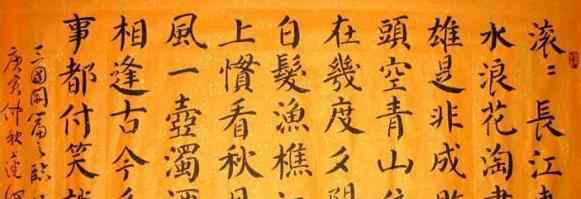 滚〻長江東
水浪花淘盡
雄是非成敗
頭空青山依
在幾度夕陽
白髮漁樵江
上慣看秋月
風一壺濁酒
相逢古今多
事都付笑談
三國開篇之臨
庚寅仲秋